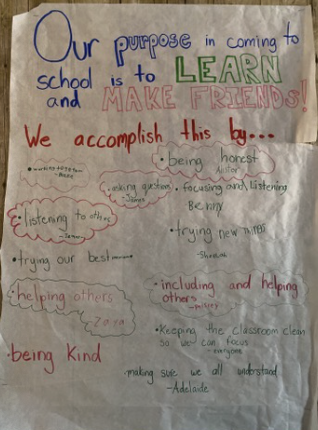 Our purpose in coming to
school is to LEARN
and MAKE FRIENDS!
We accomplish this by...
• being honest
• asking questions
• focusing and listening
Benny
• listening to others
• trying new
• trying our best
• helping others
Zara
• including and helping
others
• Keeping the classroom clean
so we can focus
- everyone
• being kind
• making sure we all understand
- Adelaide